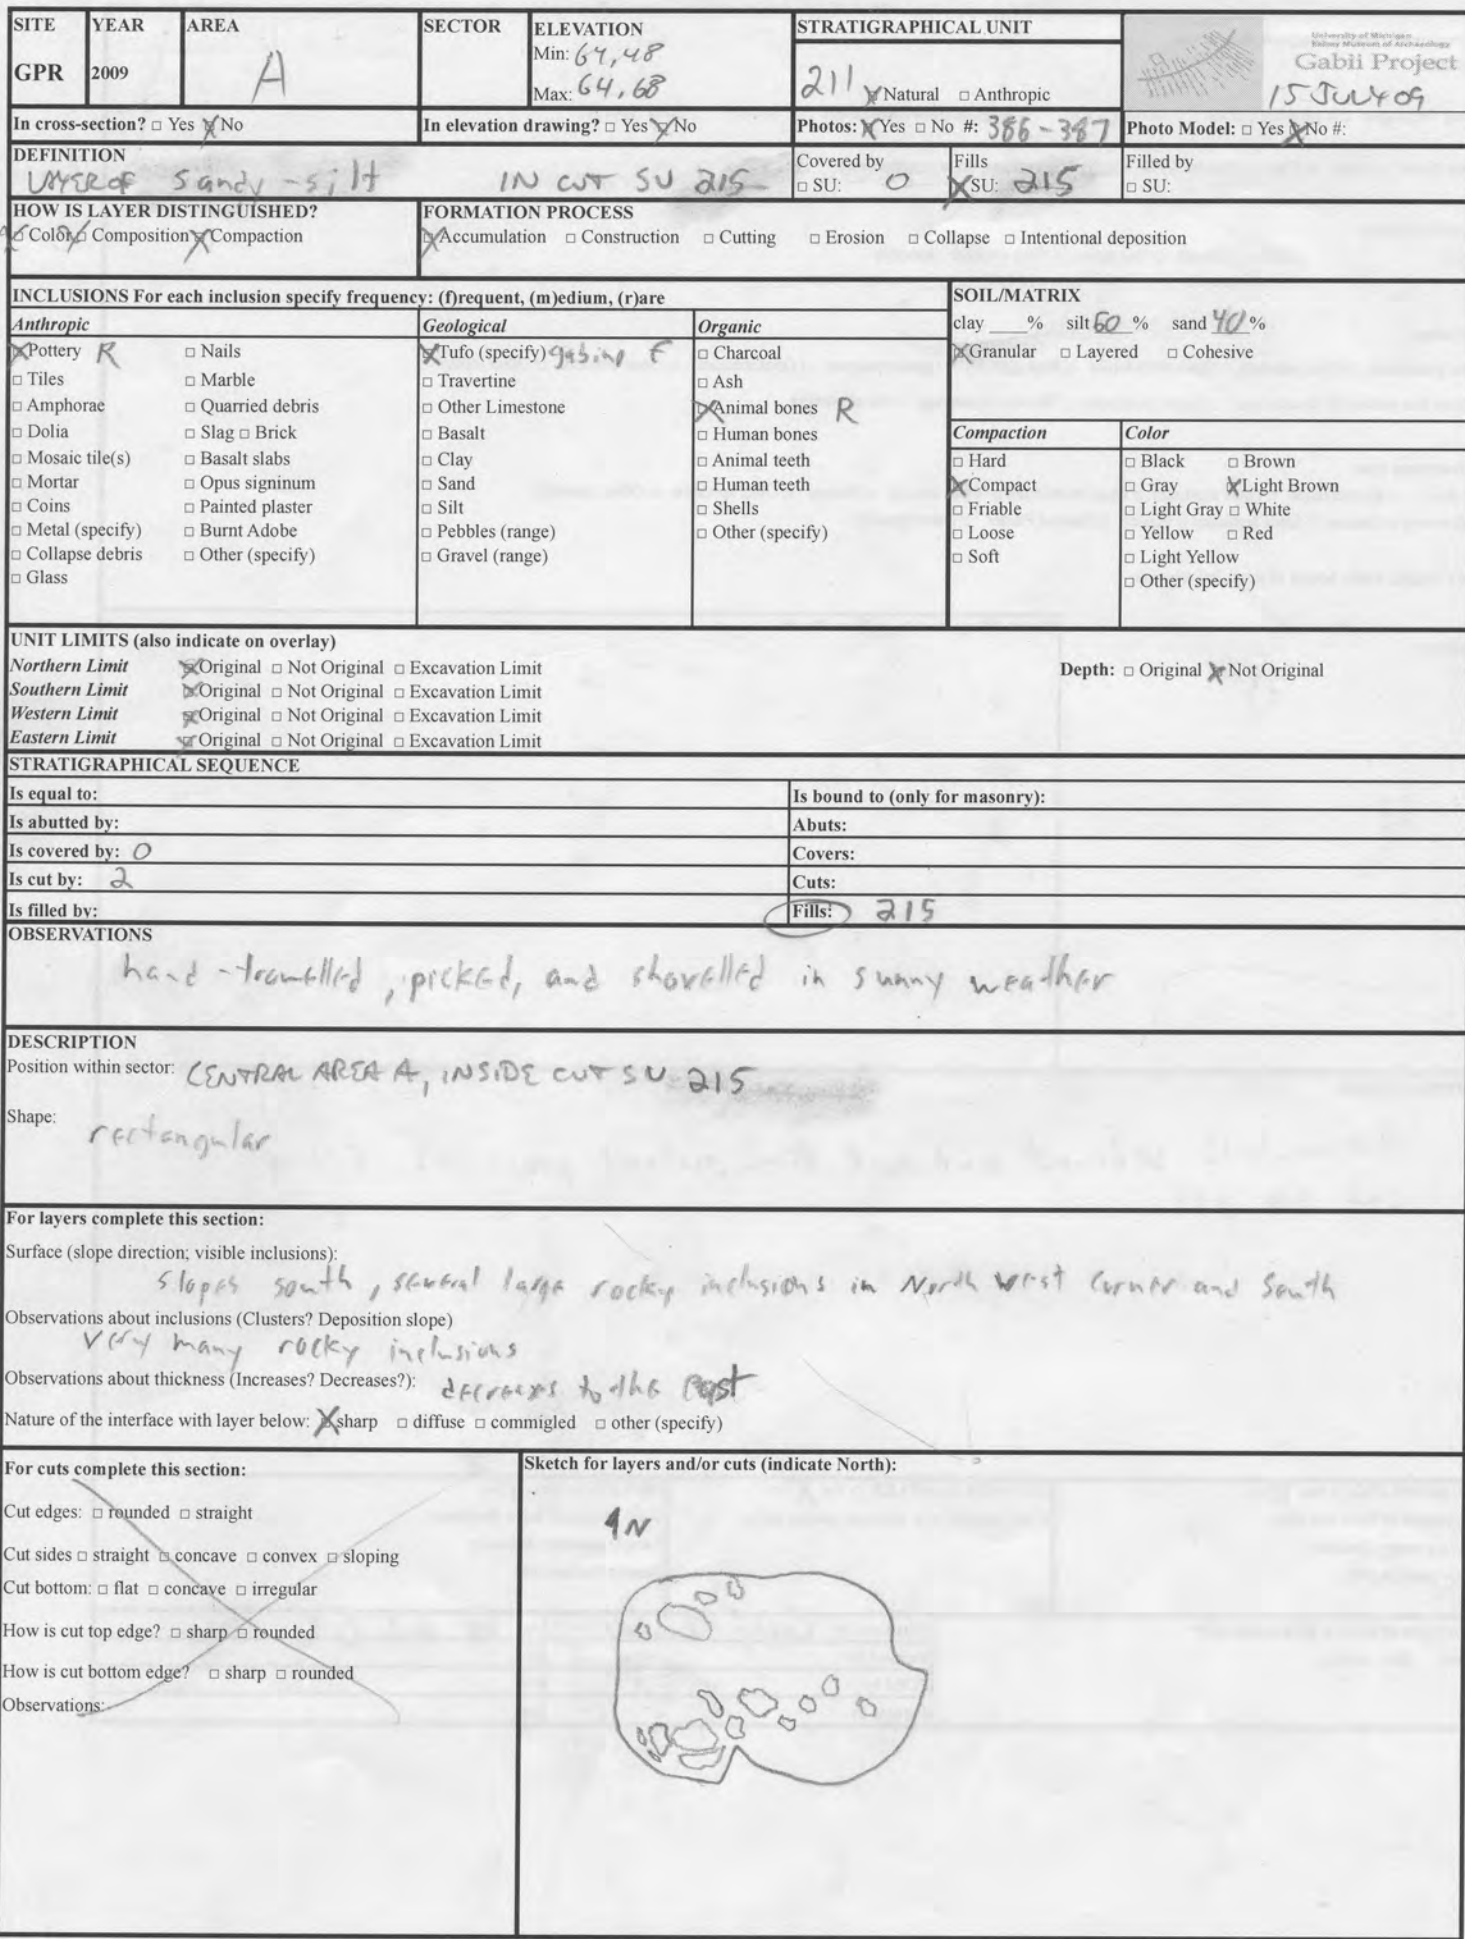 SITE YEAR AREA SECTOR ELEVATION STRATIGRAPHICAL UNIT
GPR 2009 A Min: 64,48 Max: 64,68 211 ☒ Natural □ Anthropic
University of Michigan
Kelsey Museum of Archaeology
Gabii Project
15 JULY 09
In cross-section? □ Yes ☒ No In elevation drawing? □ Yes ☒ No Photos: ☒ Yes □ No #: 386-387 Photo Model: □ Yes ☒ No #:
DEFINITION
LAYER OF sandy-silt IN CUT SU 215
Covered by □ SU: 0 Fills ☒ SU: 215 Filled by □ SU:
HOW IS LAYER DISTINGUISHED?
☒ Color ☒ Composition ☒ Compaction
FORMATION PROCESS
☒ Accumulation □ Construction □ Cutting □ Erosion □ Collapse □ Intentional deposition
INCLUSIONS For each inclusion specify frequency: (f)requent, (m)edium, (r)are
Anthropic
☒ Pottery R □ Nails
□ Tiles □ Marble
□ Amphorae □ Quarried debris
□ Dolia □ Slag □ Brick
□ Mosaic tile(s) □ Basalt slabs
□ Mortar □ Opus signinum
□ Coins □ Painted plaster
□ Metal (specify) □ Burnt Adobe
□ Collapse debris □ Other (specify)
□ Glass
Geological
☒ Tufo (specify) gabino F
□ Travertine
□ Other Limestone
□ Basalt
□ Clay
□ Sand
□ Silt
□ Pebbles (range)
□ Gravel (range)
Organic
□ Charcoal
□ Ash
☒ Animal bones R
□ Human bones
□ Animal teeth
□ Human teeth
□ Shells
□ Other (specify)
SOIL/MATRIX
clay ____% silt 60 % sand 40 %
☒ Granular □ Layered □ Cohesive
Compaction
□ Hard
☒ Compact
□ Friable
□ Loose
□ Soft
Color
□ Black □ Brown
□ Gray ☒ Light Brown
□ Light Gray □ White
□ Yellow □ Red
□ Light Yellow
□ Other (specify)
UNIT LIMITS (also indicate on overlay)
Northern Limit ☒ Original □ Not Original □ Excavation Limit
Southern Limit ☒ Original □ Not Original □ Excavation Limit
Western Limit ☒ Original □ Not Original □ Excavation Limit
Eastern Limit ☒ Original □ Not Original □ Excavation Limit
Depth: □ Original ☒ Not Original
STRATIGRAPHICAL SEQUENCE
Is equal to: Is bound to (only for masonry):
Is abutted by: Abuts:
Is covered by: 0 Covers:
Is cut by: 2 Cuts:
Is filled by: Fills: 215
OBSERVATIONS
hand-trowelled, picked, and shovelled in sunny weather
DESCRIPTION
Position within sector: CENTRAL AREA A, INSIDE CUT SU 215
Shape: rectangular
For layers complete this section:
Surface (slope direction; visible inclusions):
slopes south, several large rocky inclusions in North west corner and South
Observations about inclusions (Clusters? Deposition slope)
very many rocky inclusions
Observations about thickness (Increases? Decreases?): decreases to the East
Nature of the interface with layer below: ☒ sharp □ diffuse □ commigled □ other (specify)
For cuts complete this section:
Cut edges: □ rounded □ straight
Cut sides □ straight □ concave □ convex □ sloping
Cut bottom: □ flat □ concave □ irregular
How is cut top edge? □ sharp □ rounded
How is cut bottom edge? □ sharp □ rounded
Observations:
Sketch for layers and/or cuts (indicate North):
N